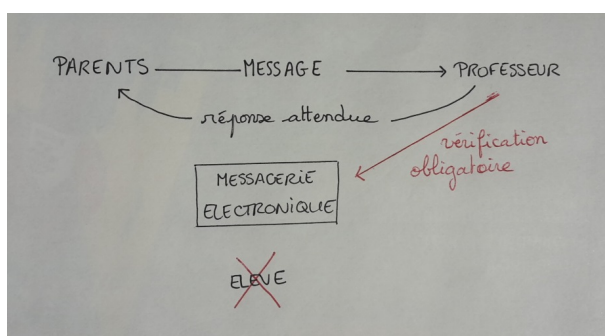 PARENTS MESSAGE PROFESSEUR
réponse attendue
vérification
obligatoire
MESSAGERIE
ELECTRONIQUE
ELEVE